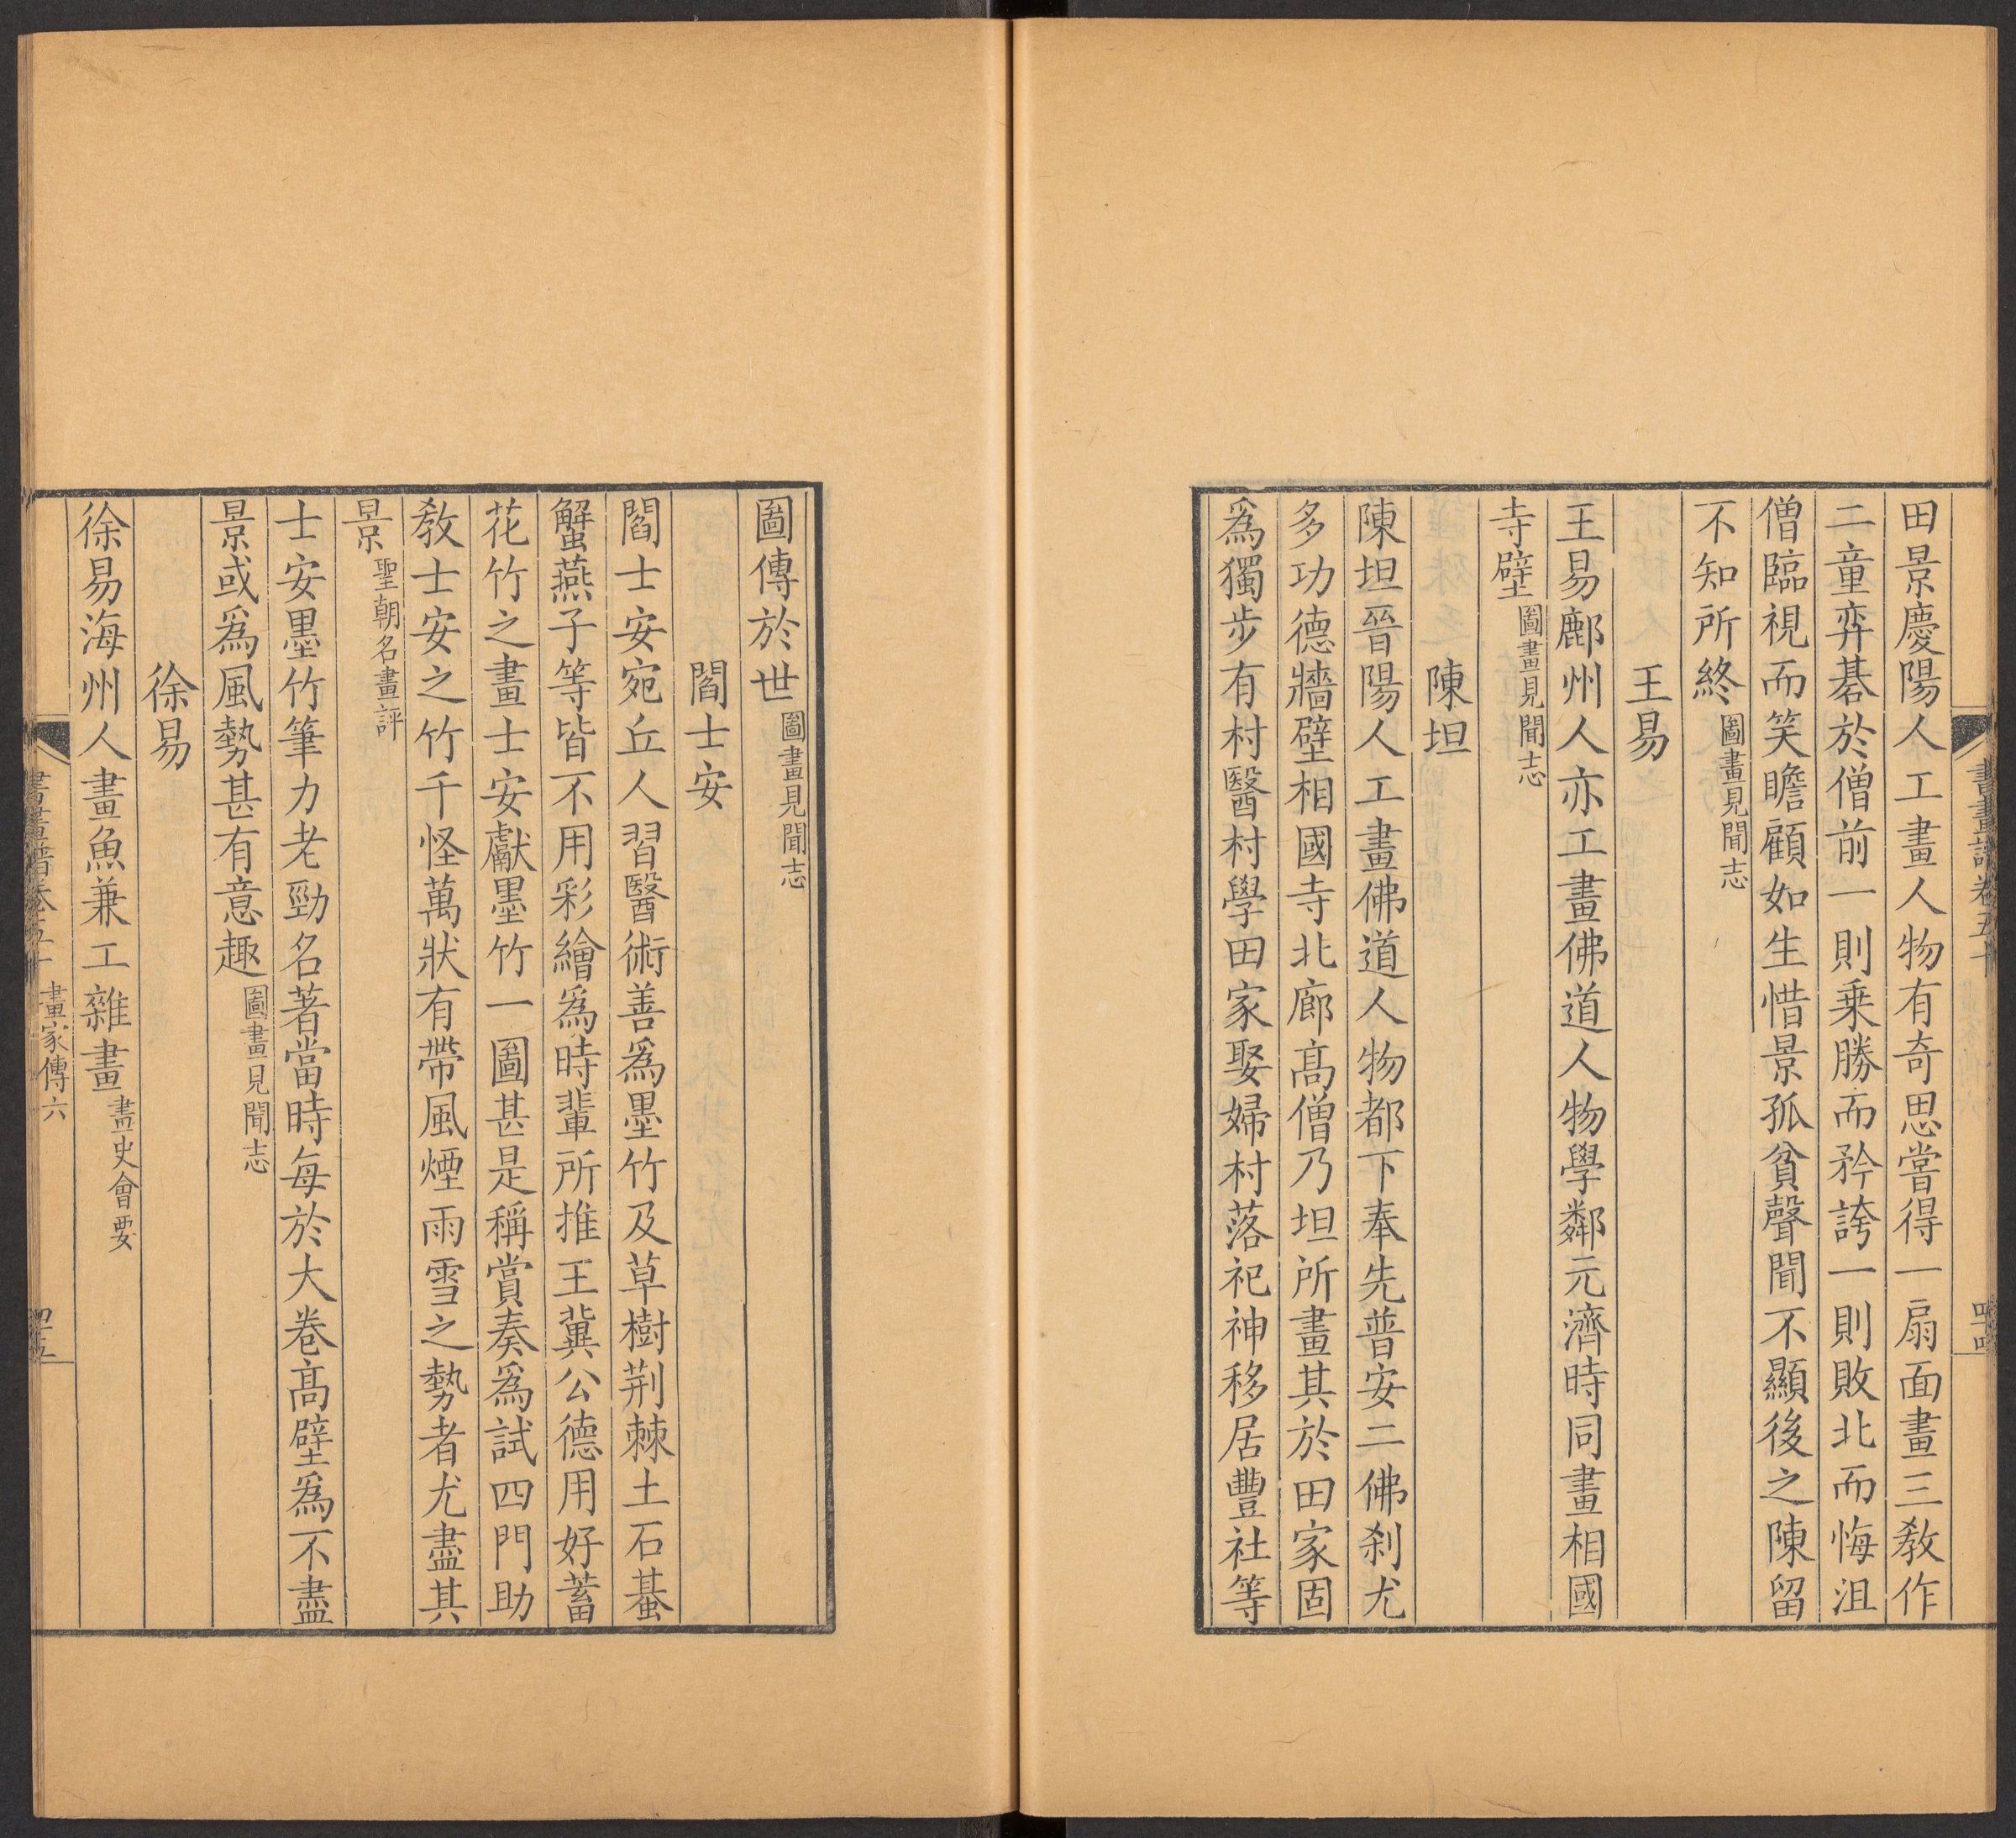 田景慶陽人工畫人物有奇思嘗得一扇面畫三敎作
二童弈碁於僧前一則乗勝而矜誇一則敗北而悔沮
僧臨視而笑瞻顧如生惜景孤貧聲聞不顯後之陳留
不知所終圖畫見聞志
王易
王易鄜州人亦工畫佛道人物學鄰元濟時同畫相國
寺壁圖畫見聞志
陳坦
陳坦晉陽人工畫佛道人物都下奉先普安二佛刹尤
多功德牆壁相國寺北廊髙僧乃坦所畫其於田家固
爲獨步有村醫村學田家娶婦村落祀神移居豐社等
圖傳於世圖畫見聞志
閻士安
閻士安宛丘人習醫術善爲墨竹及草樹荆棘土石蟇
蟹燕子等皆不用彩繪爲時輩所推王冀公德用好蓄
花竹之畫士安獻墨竹一圖甚是稱賞奏爲試四門助
敎士安之竹千怪萬狀有帶風煙雨雪之勢者尤盡其
景聖朝名畫評
士安墨竹筆力老勁名著當時每於大卷髙壁爲不盡
景或爲風勢甚有意趣圖畫見聞志
徐易
徐易海州人畫魚兼工雜畫畫史會要
書畫譜卷五十 畫家傳六